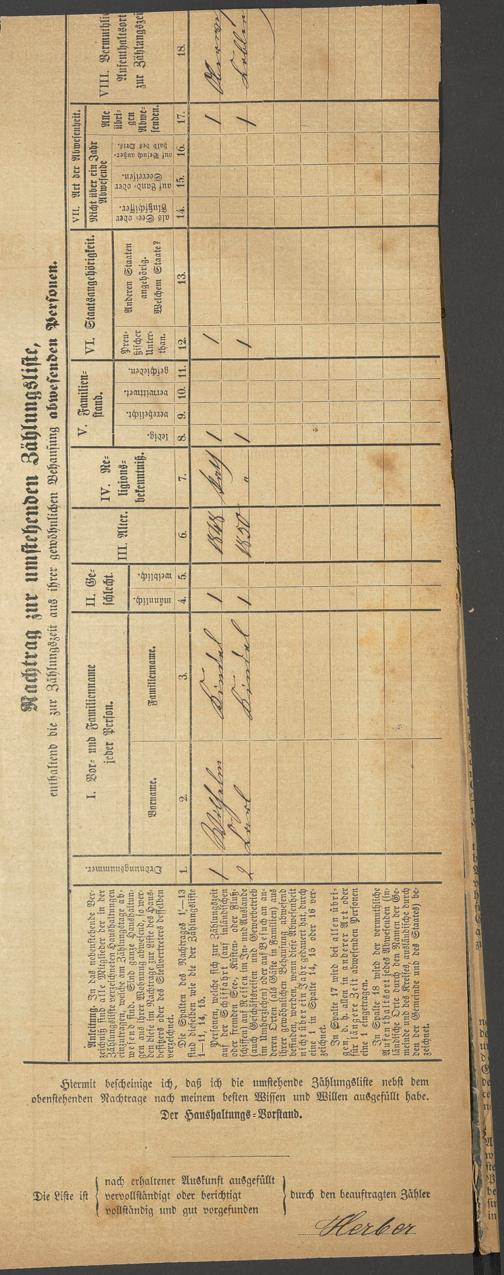 Nachtrag zur umstehenden Zählungsliste,
enthaltend die zur Zählungszeit aus ihrer gewöhnlichen Behausung abwesenden Personen.
Anleitung. In das nebenstehende Ver-
zeichniß sind alle Mitglieder der in der
Zählungsliste verzeichneten Haushaltungen
einzutragen, welche am Zählungstage ab-
wesend sind. Sind ganze Haushaltun-
gen aus ihrer Wohnung abwesend, so wer-
den diese im Nachtrage zur Liste des Haus-
besitzers oder des Stellvertreters desselben
verzeichnet.
Die Spalten des Nachtrages 1—13
sind dieselben wie die der Zählungsliste
1—11, 14, 15.
Personen, welche sich zur Zählungszeit
auf der Schiffahrt (auf inländischen
oder fremden See-, Küsten- oder Fluß-
schiffen) auf Reisen im In- und Auslande
(auch Geschäftsreisen und Gewerbebetrieb
im Umherziehen) oder auf Besuch an an-
deren Orten (als Gäste in Familien) aus
ihrer gewöhnlichen Behausung abwesend
befinden, werden, wenn diese Abwesenheit
nicht über ein Jahr gedauert hat, durch
eine 1 in Spalte 14, 15 oder 16 ver-
zeichnet.
In Spalte 17 wird bei allen übri-
gen, d. h. allen in anderer Art oder
für längere Zeit abwesenden Personen
eine 1 eingetragen.
In Spalte 18 wird der vermuthliche
Aufenthaltsort jedes Abwesenden (in-
ländische Orte durch den Namen der Ge-
meinde und des Kreises, ausländische durch
den der Gemeinde und des Staates) be-
zeichnet.
Ordnungsnummer.
I. Vor- und Familienname
jeder Person.
Vorname.
Familienname.
II. Ge-
schlecht.
männlich.
weiblich.
III. Alter.
IV. Re-
ligions-
bekenntniß.
V. Familien-
stand.
ledig.
verehelicht.
verwittwet.
geschieden.
VI. Staatsangehörigkeit.
Preu-
ßischer
Unter-
than.
Anderen Staaten
angehörig.
Welchem Staate?
VII. Art der Abwesenheit.
Nicht über ein Jahr
Abwesende
als See- oder
Flußschiffer.
auf Land- oder
Seereisen.
auf Besuch außer-
halb des Orts.
Alle
übri-
gen
Abwe-
senden.
VIII. Vermuthli
Aufenthaltsort
zur Zählungszei
1. 2. 3. 4. 5. 6. 7. 8. 9. 10. 11. 12. 13. 14. 15. 16. 17. 18.
1 Wilhelm Kindel 1 1848 kath 1 1 1
2 Karl Kindel 1 1850 " 1 1 1
Hiermit bescheinige ich, daß ich die umstehende Zählungsliste nebst dem
obenstehenden Nachtrage nach meinem besten Wissen und Willen ausgefüllt habe.
Der Haushaltungs-Vorstand.
Die Liste ist
nach erhaltener Auskunft ausgefüllt
vervollständigt oder berichtigt
vollständig und gut vorgefunden
durch den beauftragten Zähler
Herber